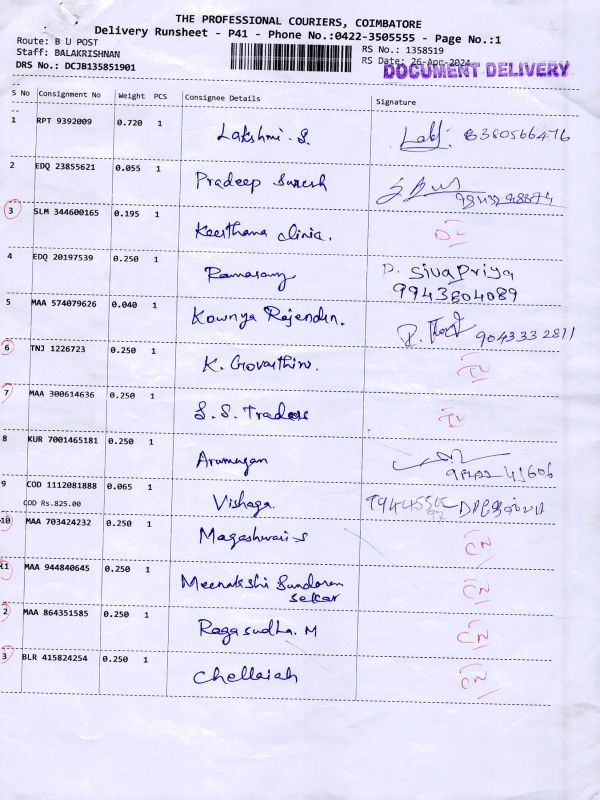 THE PROFESSIONAL COURIERS, COIMBATORE
Delivery Runsheet - P41 - Phone No.:0422-3505555 - Page No.:1
Route: B U POST
Staff: BALAKRISHNAN
DRS No.: DCJB135851901
RS No.: 1358519
RS Date: 26-Apr-2024
DOCUMENT DELIVERY
S No Consignment No Weight PCS Consignee Details Signature
1 RPT 9392009 0.720 1 Lakshmi. S. 6380566476
2 EDQ 23855621 0.055 1 Pradeep Suresh
3 SLM 344600165 0.195 1 Keerthana clinic. DL
4 EDQ 20197539 0.250 1 Ramasamy D. SivaPriya
9943604089
5 MAA 574079626 0.040 1 Kownya Rajendin. 9043332811
6 TNJ 1226723 0.250 1 K. Govarthini.
7 MAA 300614636 0.250 1 S. S. Traders
8 KUR 7001465181 0.250 1 Arumugan
9 COD 1112081888 0.065 1 Vishaga.
COD Rs.825.00
10 MAA 703424232 0.250 1 Mageshwari S CN
11 MAA 944840645 0.250 1 Meenakshi Sundaram CN
Sekar
2 MAA 864351585 0.250 1 Ragasudha. M CN
3 BLR 415824254 0.250 1 Chellaiah CN